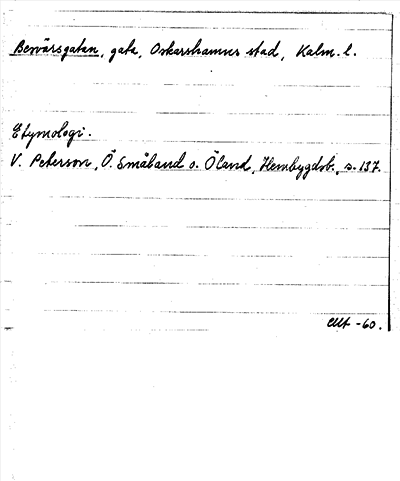 Besvärsgatan, gata, Oskarshamns stad, Kalm. l.
Etymologi.
V. Peterson, Ö. Småland o. Öland, Hembygdsb., s. 137.
-60.